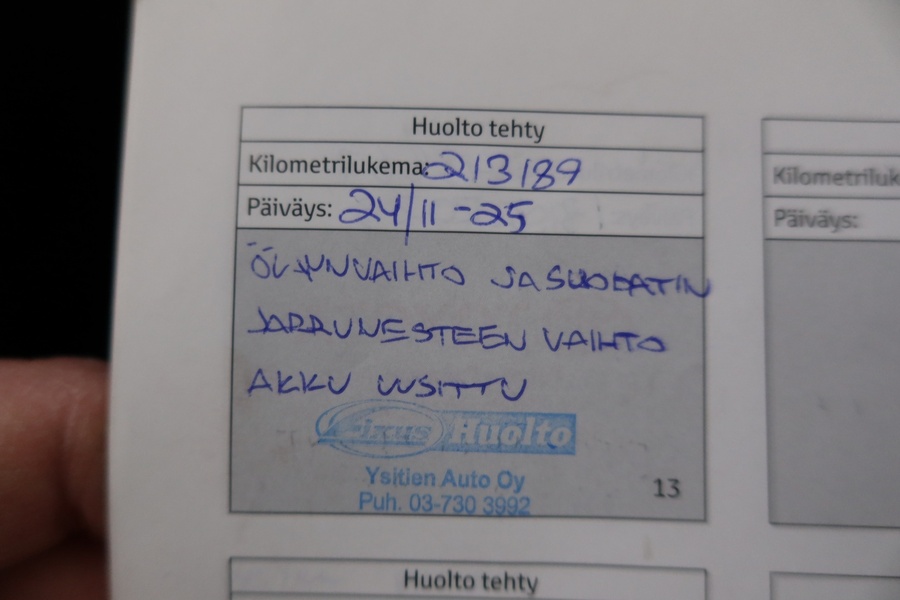 Huolto tehty
Kilometrilukema: 213189
Kilometriluk
Päiväys: 24/11-25
Päiväys:
ÖLJYNVAIHTO JA SUODATIN
JARRUNESTEEN VAIHTO
AKKU UUSITTU
Huolto
Ysitien Auto Oy
Puh. 03-730 3992
13
Huolto tehty